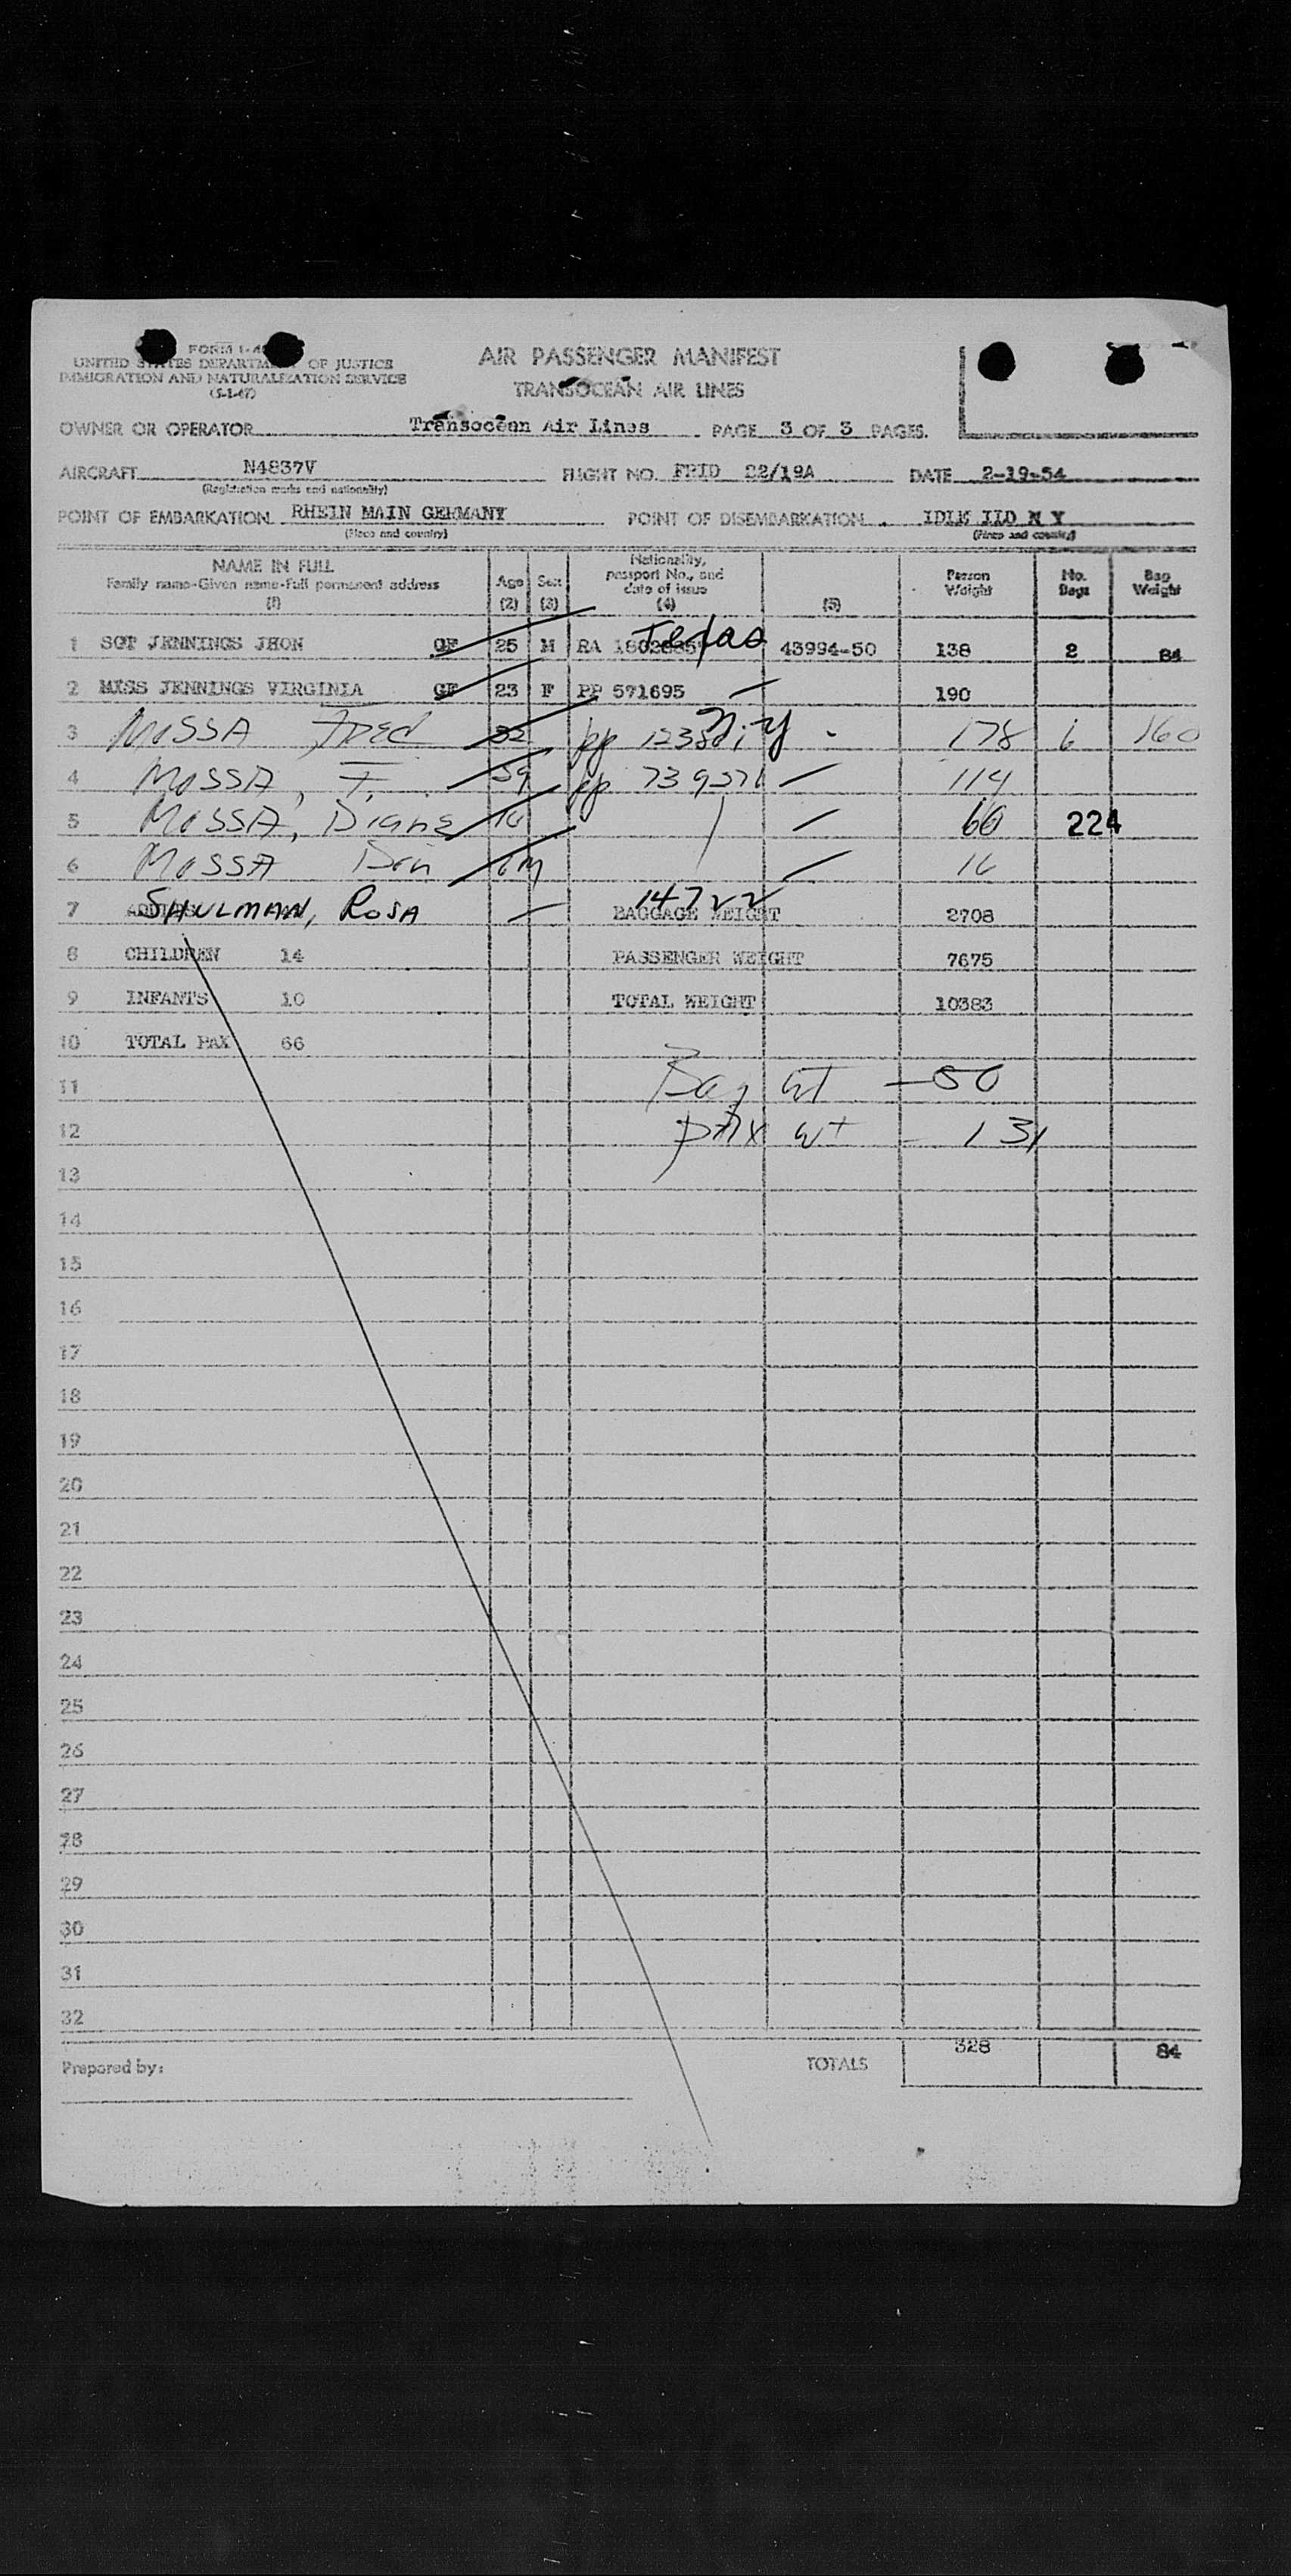 FORM I-
UNITED STATES DEPARTMENT OF JUSTICE
IMMIGRATION AND NATURALIZATION SERVICE
(5-1-47)
AIR PASSENGER MANIFEST
TRANSOCEAN AIR LINES
OWNER OR OPERATOR Transocean Air Lines PAGE 3 OF 3 PAGES.
AIRCRAFT N4837V FLIGHT NO. FRID 22/19A DATE 2-19-54
(Registration marks and nationality)
POINT OF EMBARKATION RHEIN MAIN GERMANY POINT OF DISEMBARKATION IDLE IID N Y
(Place and country) (Place and country)
NAME IN FULL
Family name-Given name-Full permanent address
(1)
Age
(2)
Sex
(3)
Nationality,
passport No., and
date of issue
(4)
(5)
Person
Weight
No.
Bags
Bag
Weight
1 SGT JENNINGS JHON GF 25 M RA Texas 43994-50 138 2 84
2 MISS JENNINGS VIRGINIA GF 23 F PP 571695 190
3 MOSSA Fred 32 pp N.Y 178 6 160
4 MOSSA, F. pp 114
5 MOSSA, Diane 60 224
6 MOSSA 6M 16
7 SHULMAN, ROSA 14722 BAGGAGE WEIGHT 2708
8 CHILDREN 14 PASSENGER WEIGHT 7675
9 INFANTS 10 TOTAL WEIGHT 10383
10 TOTAL PAX 66
11 Bag wt -50
12 pax wt - 131
13
14
15
16
17
18
19
20
21
22
23
24
25
26
27
28
29
30
31
32
Prepared by: TOTALS 328 84